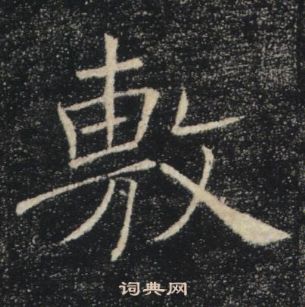 敷
词典网